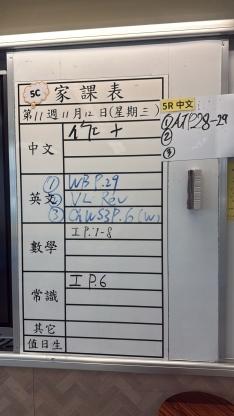 5C 家課表
第11週11月12日(星期三)
中文
英文 ① WB P.29
② VL Rev
③ Ch WS3 P.6 (W)
數學 工 P.7-8
常識 工 P.6
其它
值日生
5R 中文
①
P28-29
②
③